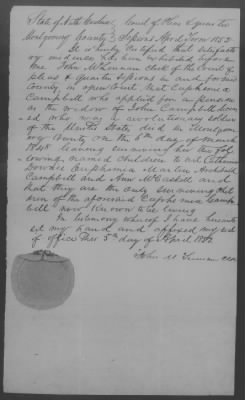 State of North Carolina Court of Pleas & Quarter
Montgomery County Sessions April Term 1852
It is hereby Certified that satisfactory
evidence has been exhibited before
me John McLennan clerk of the Court of
pleas & Quarter Sessions in and for said
County, in open Court that Euphemia
Campbell who applied for a pension
as the widow of John Campbell
ed who was a revolutionary soldier
of the United States, died in Montgom
ery County on the 6th day of March
1848 leaving surviving her the fol
lowing named children to wit Catharine
Dowdee Euphemia Martin Archibald
Campbell and Ann McCaskill and
that they are the only surviving chil
dren of the aforesaid Euphemia Camp
bell now known to be living
In testimony whereof I have hereunto
set my hand and affixed my seal
of office this 5th day of April 1852
John McLennan Clk